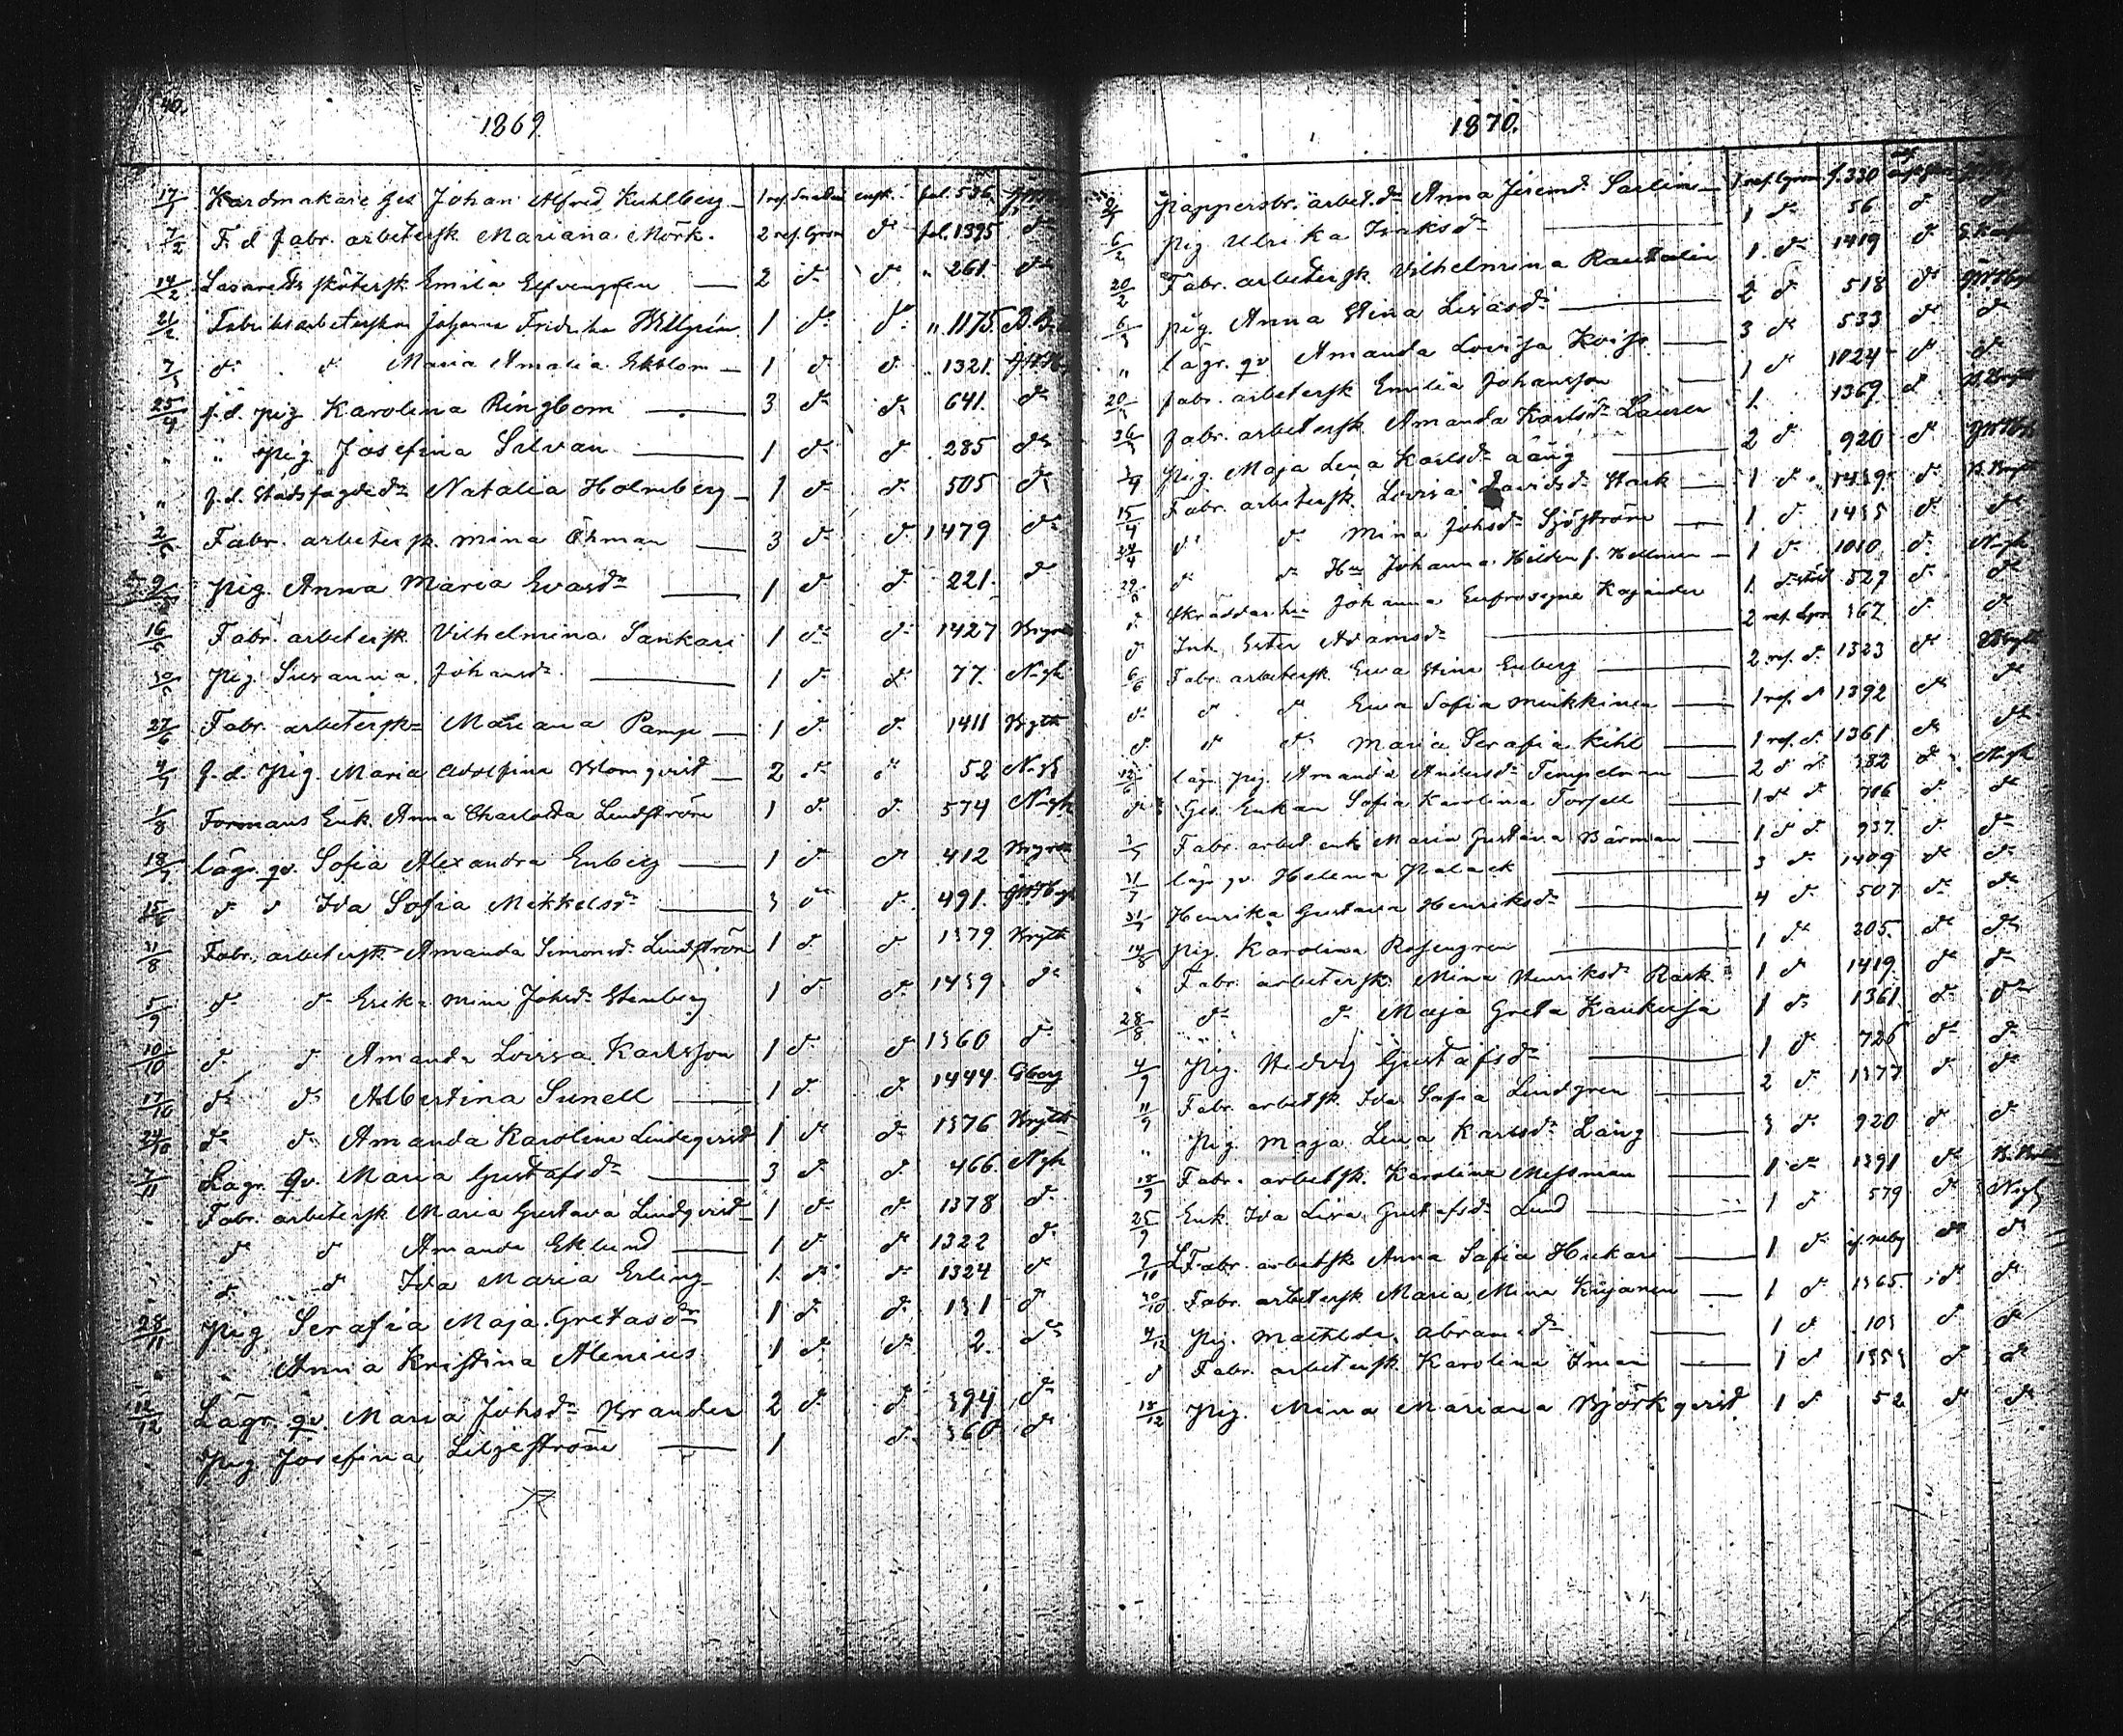 40.
1869
17/1 Kardmakare Ges Johan Alfred Kuhlberg — 1 ref. enk. fol. 536
7/2 F. d fabr. arbetersk Mariana Mörk. 2 ref. Gross d:o fol. 1395 d:o
14/2 Lasaretts sköterſk Emila Elfvengren — 2 d:o d:o " 261. d:o
21/2 Fabriksarbeterskan Johanna Fridrika Hellgrén 1 d:o d:o " 1175.
7/3 d:o d:o Maria Amalia Ekblom — 1 d:o d:o " 1321.
25/4 f. d. pig Karolina Ringbom — 3 d:o d:o 641. d:o
" " pig Josefina Silvan — 1 d:o d:o 285 d:o
" f. d. Stadsfogde d:r Natalia Holmberg — 1 d:o d:o 505 d:o
2/5 Fabr. arbetersk. Mina Öhman — 3 d:o d:o 1479 d:o
9/5 Pig. Anna Maria Evasd:r — 1 d:o d:o 221. d:o
16/5 Fabr. arbetersk Vilhelmina Sankari 1 d:o d:o 1427
30/5 Pig. Susanna Johansd:r — 1 d:o d:o 77. N-gh
27/6 Fabr. arbetersk= Mariana Pamp — 1 d:o d:o 1411 Brytt
4/7 f. d. Pig. Maria Adolfina Blomqvist — 2 d:o d:o 52 N-gh
1/8 Formans Enk. Anna Charlotta Lindström 1 d:o d:o 574 N-gh
18/7 lägr. qv. Sofia Alexandra Enberg — 1 d:o d:o 412
15/8 d:o d:o Ida Sofia Mikkelsd:r — 3 d:o d:o 491.
31/8 Fabr. arbetersk Amanda Simonsd:r Lindström 1 d:o d:o 1379 Brytt
5/9 d:o d:o Erika Mina Johsd:r Stenberg 1 d:o d:o 1439 d:o
10/10 d:o d:o Amanda Lovisa Karlsson 1 d:o d:o 1360 d:o
17/10 d:o d:o Albertina Sunell — 1 d:o d:o 1444. Gborg
24/10 d:o d:o Amanda Karolina Lindeqvist 1 d:o d:o 1376 Brytt
7/11 Lägr. qv. Maria Gustafsd:r — 3 d:o d:o 466. N-gh
" Fabr. arbetersk Maria Gustava Lindqvist — 1 d:o d:o 1378 d:o
" d:o d:o Amanda Eklund — 1 d:o d:o 1322 d:o
" d:o d:o Ida Maria Erling 1 d:o d:o 1324 d:o
28/11 Pig Serafia Maja Gretasd:r 1 d:o d:o 131 d:o
" " Anna Kristina Alenius 1 d:o d:o 2. d:o
12/12 Lägr. qv. Maria Johsd:r Brander 2 d:o d:o 394 d:o
" Pig Josefina Liljeström — 1 d:o 360 d:o
1870.
Pappersbr. arbet. d:r Anna Jeremd:r Sarlin — 1 ref. Gross f. 330
6/2 Pig Ulrika Isaksd:r — 1 d:o 56 d:o d:o
20/2 Fabr. arbetersk Vilhelmina Rautalin 1 d:o 1419 d:o
6/3 Pig. Anna Stina Lisasd:r — 2 d:o 518 d:o
" lägr. qv Amanda Lovisa — 3 d:o 533 d:o d:o
20/3 fabr. arbetersk Emilia Johansson — 1 d:o 1024 d:o d:o
26/3 fabr. arbetersk Amanda Karlsd:r Lauren 1. 1369 d:o
Pig. Maja Lena Karlsd:r Lång — 2 d:o 920 d:o
15/4 Fabr. arbetersk. Lovisa Davidsd:r Stark — 1 d:o 1439 d:o
24/4 d:o d:o Mina Johsd:r Sjöström — 1. d:o 1435 d:o d:o
29. d:o d:o Hu Johanna Hilden f. Hellman — 1 d:o 1010 d:o N-gh
d:o Skräddar hu Johanna Eufrosyne Kajander 1. 527 d:o d:o
d:o Inh. Ester Adamsd:r — 2 ref. 367 d:o d:o
6/6 Fabr. arbetersk. Eva Stina Enberg — 2 ref. d:o 1323 d:o Brytt
d:o d:o d:o Eva Sofia Muikkinen — 1 ref. d:o 1392 d:o d:o
d:o d:o d:o Maria Serafia Kihl — 1 ref. d:o 1361 d:o d:o
12/6 lägr. pig. Amanda Andersd:r Tempelman — 2 d:o d:o 382 d:o N-gh
d:o Ges. Enkan Sofia Karolina Torsell — 1 d:o d:o 706 d:o d:o
3/7 Fabr. arbet enk Maria Gustava Bärman — 1 d:o d:o 937. d:o d:o
31/7 lägr. qv. Helena Palack — 3 d:o 1409 d:o d:o
31/7 Henrika Gustava Henriksd:r — 4 d:o 507 d:o d:o
14/8 pig. Karolina Rosengren — 1 d:o 205. d:o d:o
" Fabr. arbetersk. Mina Henriksd:r Rask 1 d:o 1419. d:o d:o
28/8 d:o d:o Maja Greta Kaukersa 1 d:o 1361 d:o d:o
4/9 Pig. Hedvig Gustafsd:r — 1 d:o 726 d:o d:o
11/9 Fabr. arbetsk. Ida Sofia Lindgren — 2 d:o 1377 d:o d:o
" Pig Maja Lena Karlsd:r Lång — 3 d:o 920 d:o d:o
18/9 Fabr. arbetsk. Karolina Messman — 1 d:o 1391 d:o
25/9 Enk. Ida Lisa Gustafsd:r Lund — 1 d:o 579 d:o N-gh
2/10 Fabr. arbetsk Anna Sofia Hukari — 1 d:o d:o d:o
30/10 Fabr. arbetersk. Maria Mina Kujanen — 1 d:o 1365 d:o d:o
4/12 Pig. Mathilda Abramsd:r — 1 d:o 103 d:o d:o
d:o Fabr. arbetersk. Karolina Öman — 1 d:o 1353 d:o d:o
18/12 Pig. Mina Mariana Björkqvist 1 d:o 52 d:o d:o